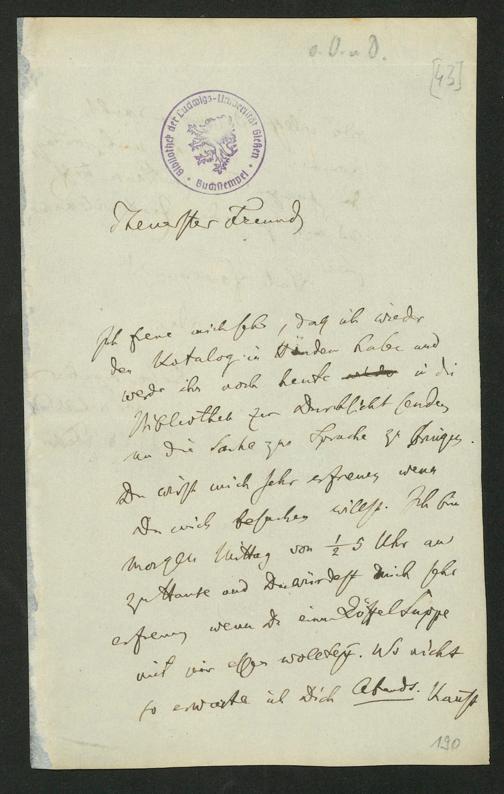 o. D. u. O.
[43]
Bibliothek der Ludwigs-Universität Gießen
Buchstempel
Theuerster Freund
Ich freue mich sehr, daß ich wieder
den Katalog in Händen habe und
werde ihn noch heute in die
Bibliothek zur Durchsicht senden
um die Sache zur Sprache zu bringen.
Du wirst mich sehr erfreuen wenn
Du mich besuchen willst. Ich bin
morgen Mittag von ½ 5 Uhr an
zu Hause und Du würdest mich sehr
erfreuen wenn Du einen Löffel Suppe
mit mir essen wolltest. Wo nicht
so erwarte ich Dich Abends. Kannst
190